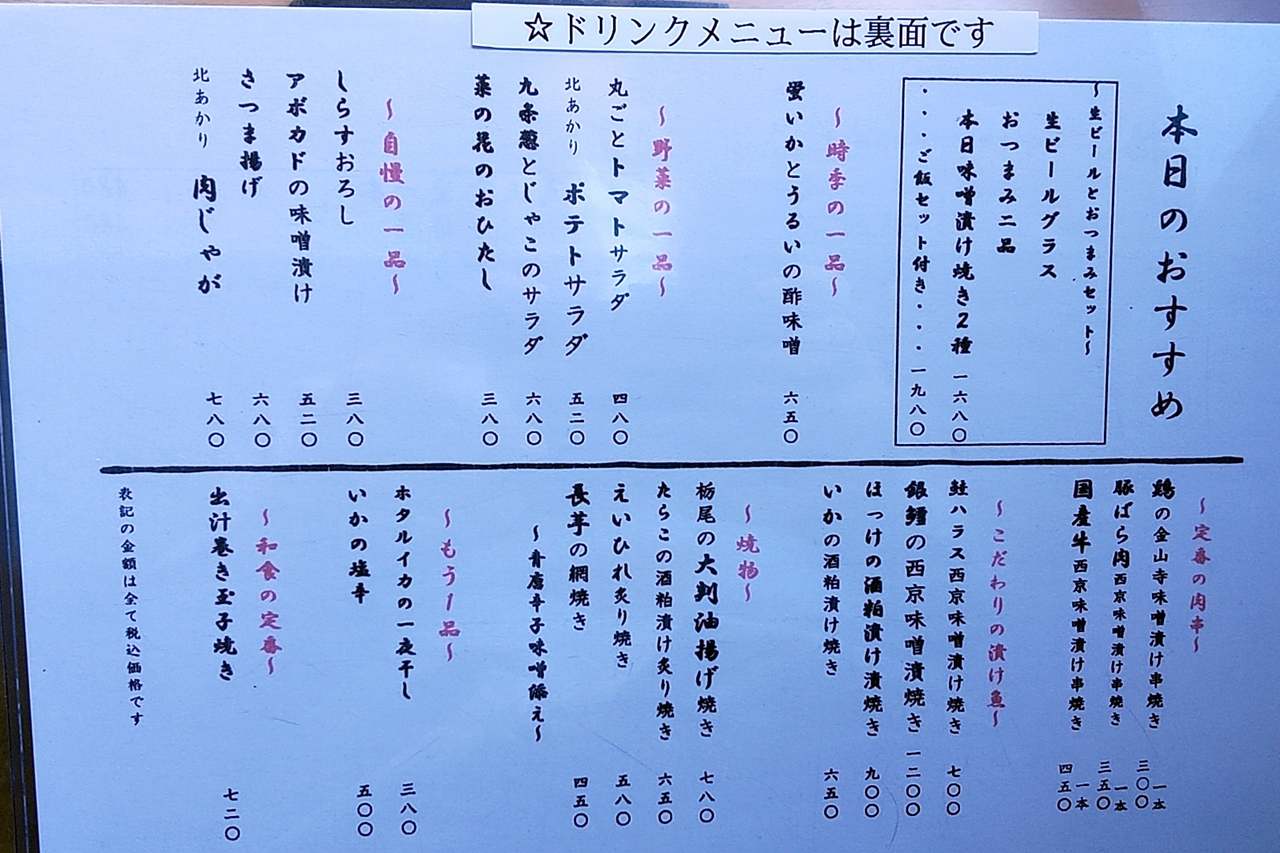 ☆ドリンクメニューは裏面です
本日のおすすめ
～生ビールとおつまみセット～
生ビールグラス
おつまみ二品
本日味噌漬け焼き2種 一六八〇
・・・ご飯セット付き・・・ 一九八〇
～時季の一品～
蛍いかとうるいの酢味噌 六五〇
～野菜の一品～
丸ごとトマトサラダ 四八〇
北あかり ポテトサラダ 五二〇
九条葱とじゃこのサラダ 六八〇
菜の花のおひたし 三八〇
～自慢の一品～
しらすおろし 三八〇
アボカドの味噌漬け 五二〇
さつま揚げ 六八〇
北あかり 肉じゃが 七八〇
～定番の肉串～
鶏の金山寺味噌漬け串焼き 一本 三〇〇
豚ばら肉西京味噌漬け串焼き 一本 三五〇
国産牛西京味噌漬け串焼き 一本 四五〇
～こだわりの漬け魚～
鮭ハラス西京味噌漬け焼き 七〇〇
銀鱈の西京味噌漬焼き 一二〇〇
ほっけの酒粕漬け漬焼き 九〇〇
いかの酒粕漬け焼き 六五〇
～焼物～
栃尾の大判油揚げ焼き 七八〇
たらこの酒粕漬け炙り焼き 六五〇
えいひれ炙り焼き 五八〇
長芋の網焼き 四五〇
～青唐辛子味噌添え～
～もう1品～
ホタルイカの一夜干し 三八〇
いかの塩辛 五〇〇
～和食の定番～
出汁巻き玉子焼き 七二〇
表記の金額は全て税込価格です